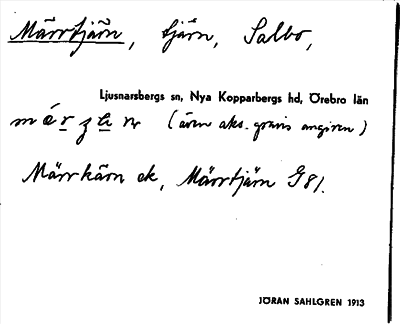 Märrtjärn, tjärn, Salbo,
Ljusnarsbergs sn, Nya Kopparbergs hd, Örebro län
(även aks. gravis angiven)
Märrkärn ek, Märrtjärn G 81.
JÖRAN SAHLGREN 1913